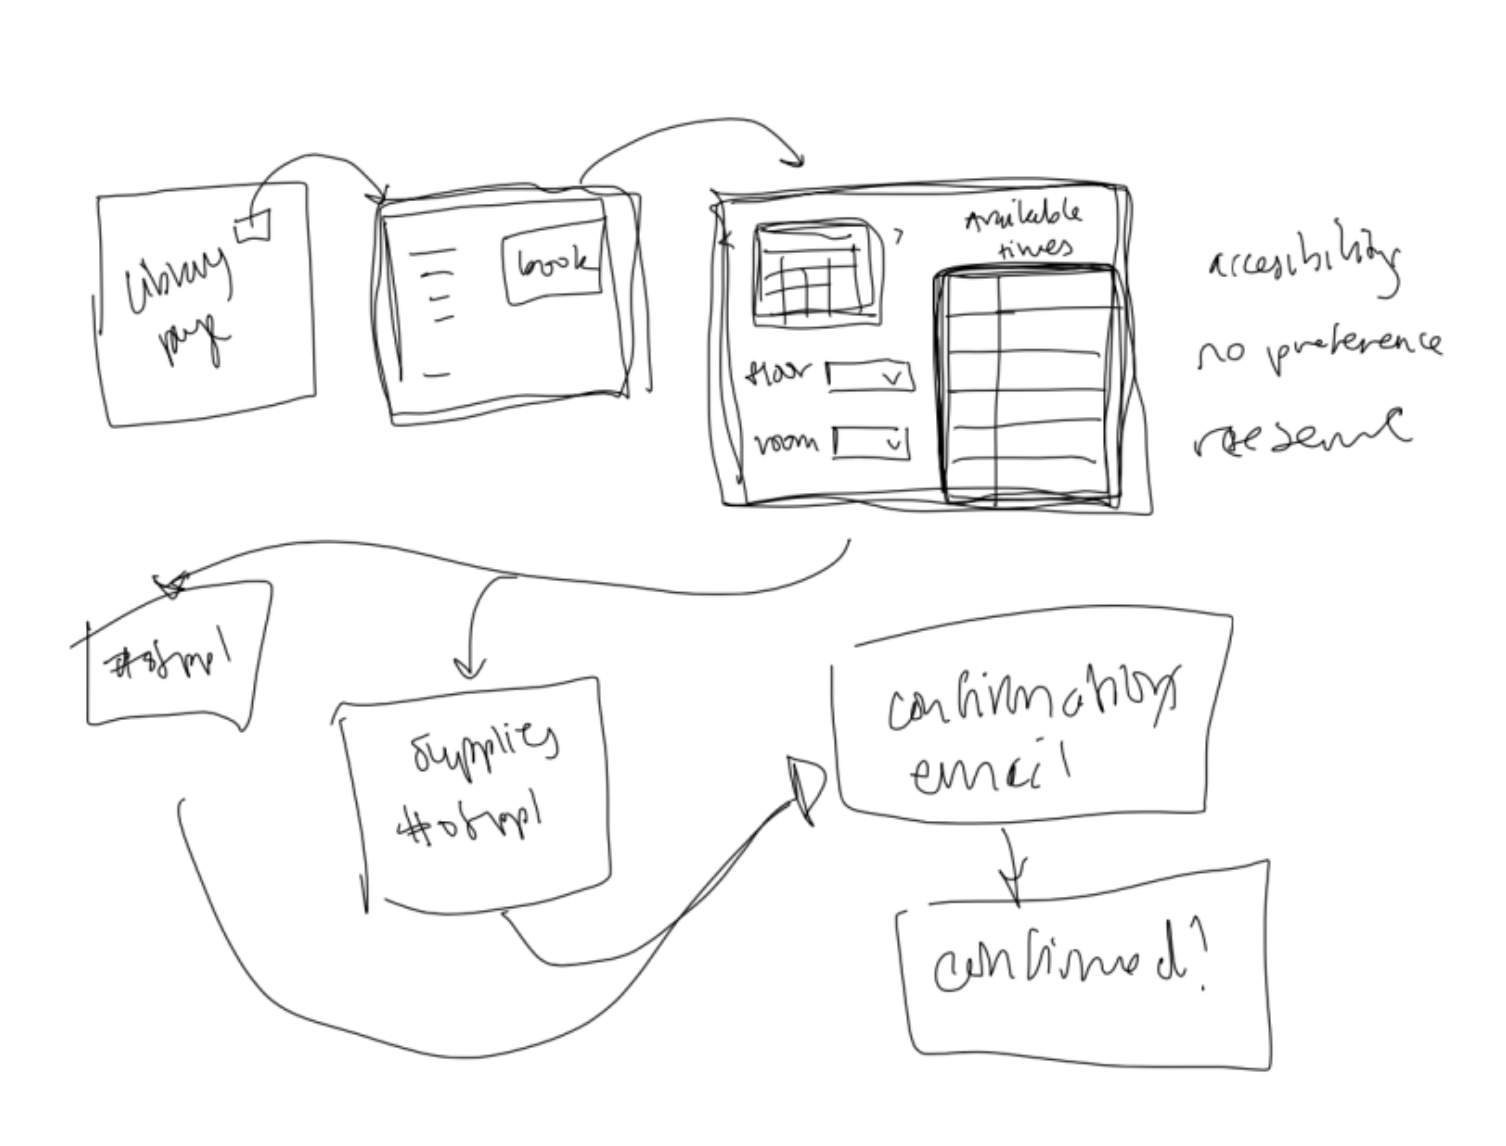 Library
page
book
Available
times
floor
room
accesibility
no preference
reserve
#ofppl
supplies
#ofppl
confirmation
email
confirmed!